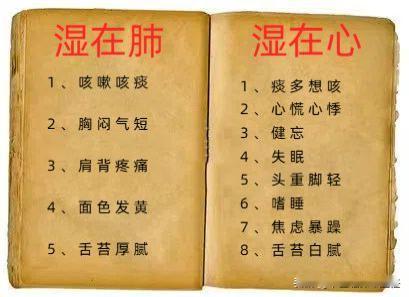 湿在肺
1、咳嗽咳痰
2、胸闷气短
3、肩背疼痛
4、面色发黄
5、舌苔厚腻
湿在心
1、痰多想咳
2、心慌心悸
3、健忘
4、失眠
5、头重脚轻
6、嗜睡
7、焦虑暴躁
8、舌苔白腻